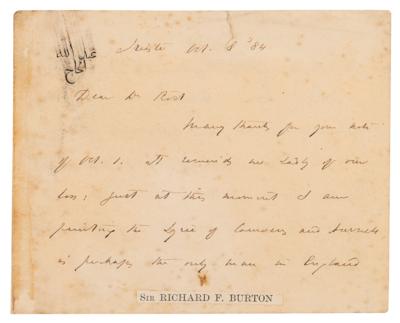 Trieste Oct. 8 '84
Dear Dr Rost
Many thanks for your note
of Oct. 1. It reminds me sadly of our
loss: just at this moment I am
printing the Lyrics of Camoens and Burnell
is perhaps the only man in England
SIR RICHARD F. BURTON